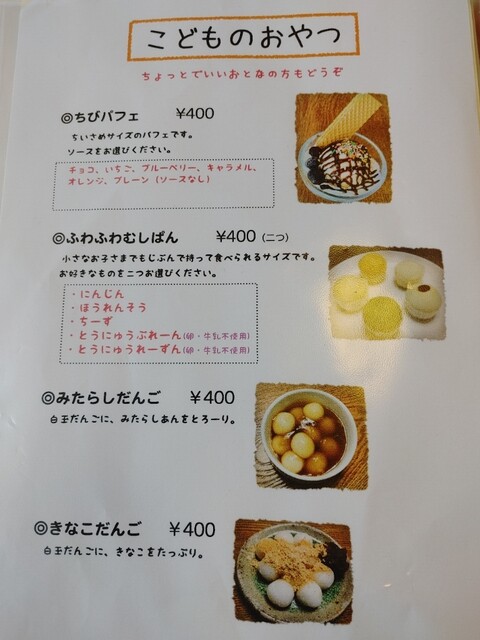 こどものおやつ
ちょっとでいいおとなの方もどうぞ
◎ちびパフェ ¥400
ちいさめサイズのパフェです。
ソースをお選びください。
チョコ、いちご、ブルーベリー、キャラメル、
オレンジ、プレーン（ソースなし）
◎ふわふわむしぱん ¥400（二つ）
小さなお子さまでもじぶんで持って食べられるサイズです。
お好きなものを二つお選びください。
・にんじん
・ほうれんそう
・ちーず
・とうにゅうぷれーん(卵・牛乳不使用)
・とうにゅうれーずん(卵・牛乳不使用)
◎みたらしだんご ¥400
白玉だんごに、みたらしあんをとろーり。
◎きなこだんご ¥400
白玉だんごに、きなこをたっぷり。